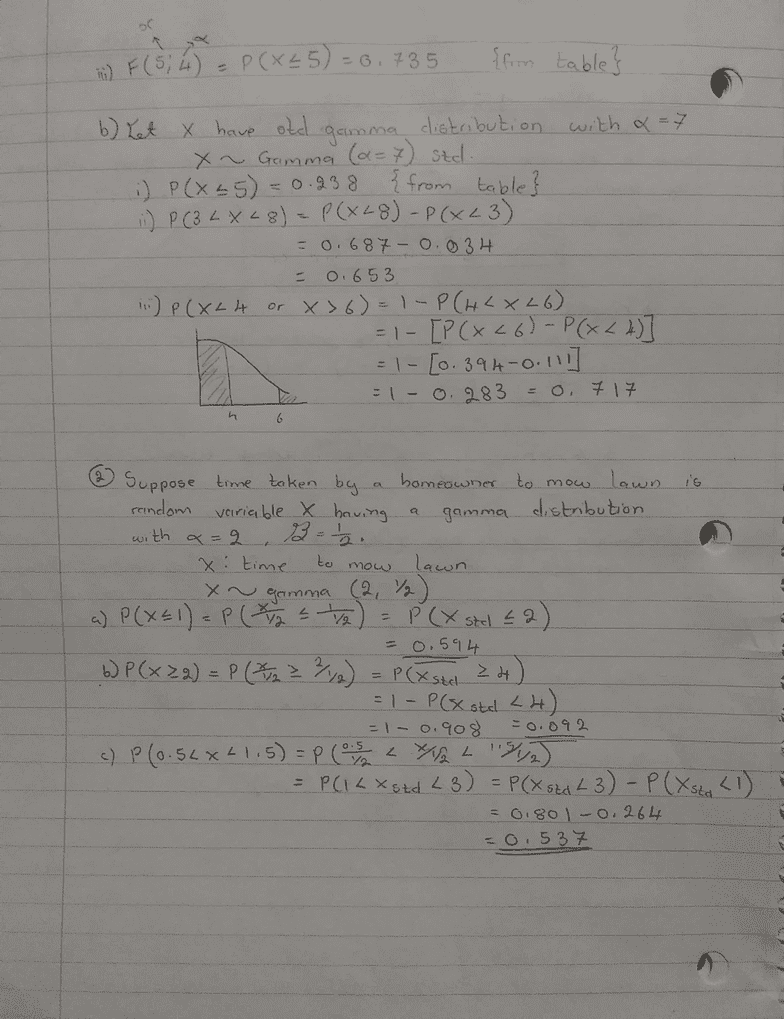 x α
iii) F(5; 4) = P(X ≤ 5) = 0.735 {from table}
b) Let X have std gamma distribution with α = 7
X ~ Gamma (α = 7) std.
i) P(X ≤ 5) = 0.238 {from table}
ii) P(3 < X < 8) = P(X < 8) - P(X < 3)
= 0.687 - 0.034
= 0.653
iii) P(X < 4 or X > 6) = 1 - P(4 < X < 6)
= 1 - [P(X < 6) - P(X < 4)]
= 1 - [0.394 - 0.111]
= 1 - 0.283 = 0.717
4 6
② Suppose time taken by a homeowner to mow lawn is
random variable X having a gamma distribution
with α = 2, β = 1/2.
X : time to mow lawn
X ~ gamma (2, 1/2)
a) P(X ≤ 1) = P(X/1/2 ≤ 1/1/2) = P(X std ≤ 2)
= 0.594
b) P(X ≥ 2) = P(X/1/2 ≥ 2/1/2) = P(X std ≥ 4)
= 1 - P(X std < 4)
= 1 - 0.908 = 0.092
c) P(0.5 < X < 1.5) = P(0.5/1/2 < X/1/2 < 1.5/1/2)
= P(1 < X std < 3) = P(X std < 3) - P(X std < 1)
= 0.801 - 0.264
= 0.537